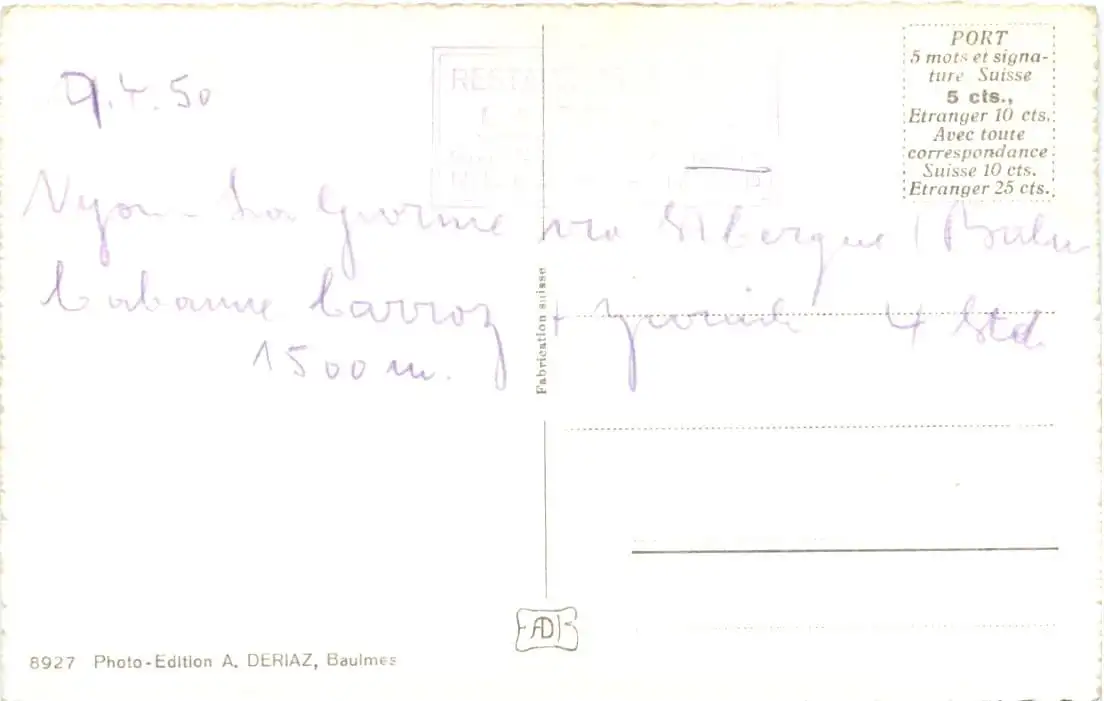 9.4.50
PORT
5 mots et signa-
ture Suisse
5 cts.,
Etranger 10 cts.
Avec toute
correspondance
Suisse 10 cts.
Etranger 25 cts.
Nyon - La Givrine via St Cergue (Bahn
Cabanne Carroz + zurück 4 Std
1500 m.
Fabrication suisse
AD
8927 Photo-Edition A. DERIAZ, Baulmes